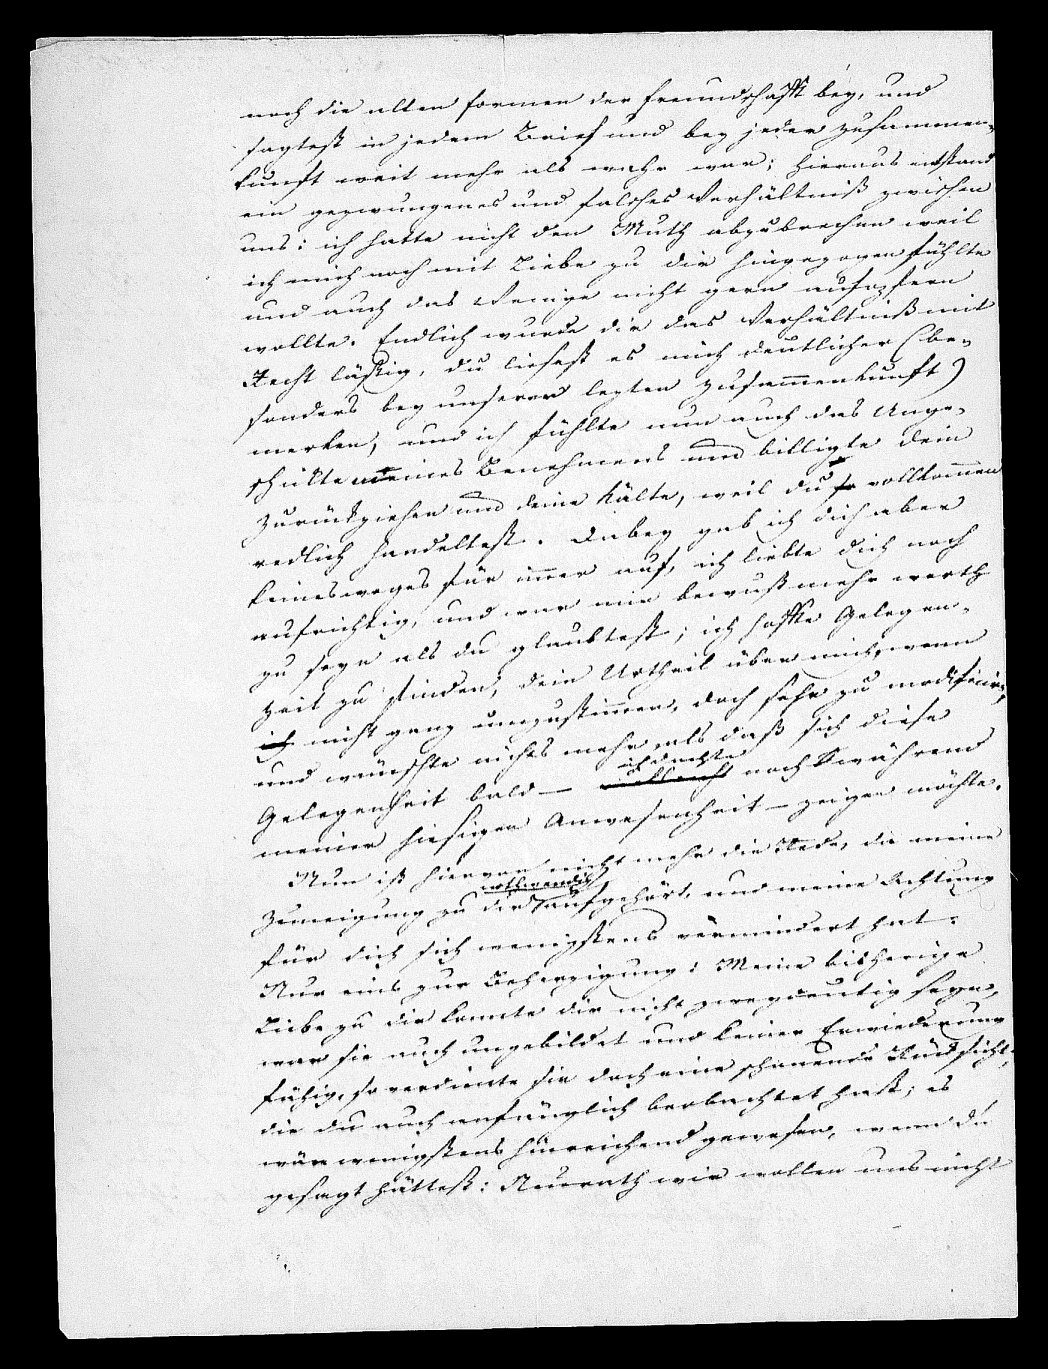 noch die alten Formen der Freundschafft bey, und
sagtest in jedem Brief und bey jeder Zusammen-
kunft weit mehr als wahr war; hieraus entstand
ein gezwungenes und falsches Verhältniß zwischen
uns: ich hatte nicht den Muth abzubrechen weil
ich mich noch mit Liebe zu dir hingezogen fühlte
und auch das Wenige nicht gern aufopfern
wollte. Endlich wurde dir das Verhältniß mit
Recht lästig, du ließest es mich deutlicher (be-
sonders bey unserer letzten Zusammenkunft)
merken, und ich fühlte nun auch das Unge-
schickte meines Benehmens und billigte dein
Zurückziehen und deine Kälte, weil du so vollkommen
redlich handeltest. Dabey gab ich dich aber
keinesweges für immer auf, ich liebte dich noch
aufrichtig, und war mir bewußt mehr werth
zu seyn als du glaubtest; ich hoffte Gelegen-
heit zu finden, dein Urtheil über mich, wenn
ich nicht ganz umzustimmen, doch sehr zu modificiren,
und wünschte nichts mehr, als daß sich diese
Gelegenheit bald — ich dachte noch während
meiner hiesigen Anwesenheit — zeigen möchte.
Nun ist hiervon nicht mehr die Rede, da meine
Zuneigung zu dir nothwendig aufgehört, und meine Achtung
für dich sich wenigstens vermindert hat.
Nur eins zur Beherzigung: Meine bisherige
Liebe zu dir konnte dir nicht zweydeutig seyn,
war sie auch ungebildet und keiner Erwiederung
fähig, so verdiente sie doch eine schonende Rücksicht,
die du auch anfänglich beobachtet hast; es
wäre wenigstens hinreichend gewesen, wenn du
gesagt hättest: Neurath wir wollen uns nicht